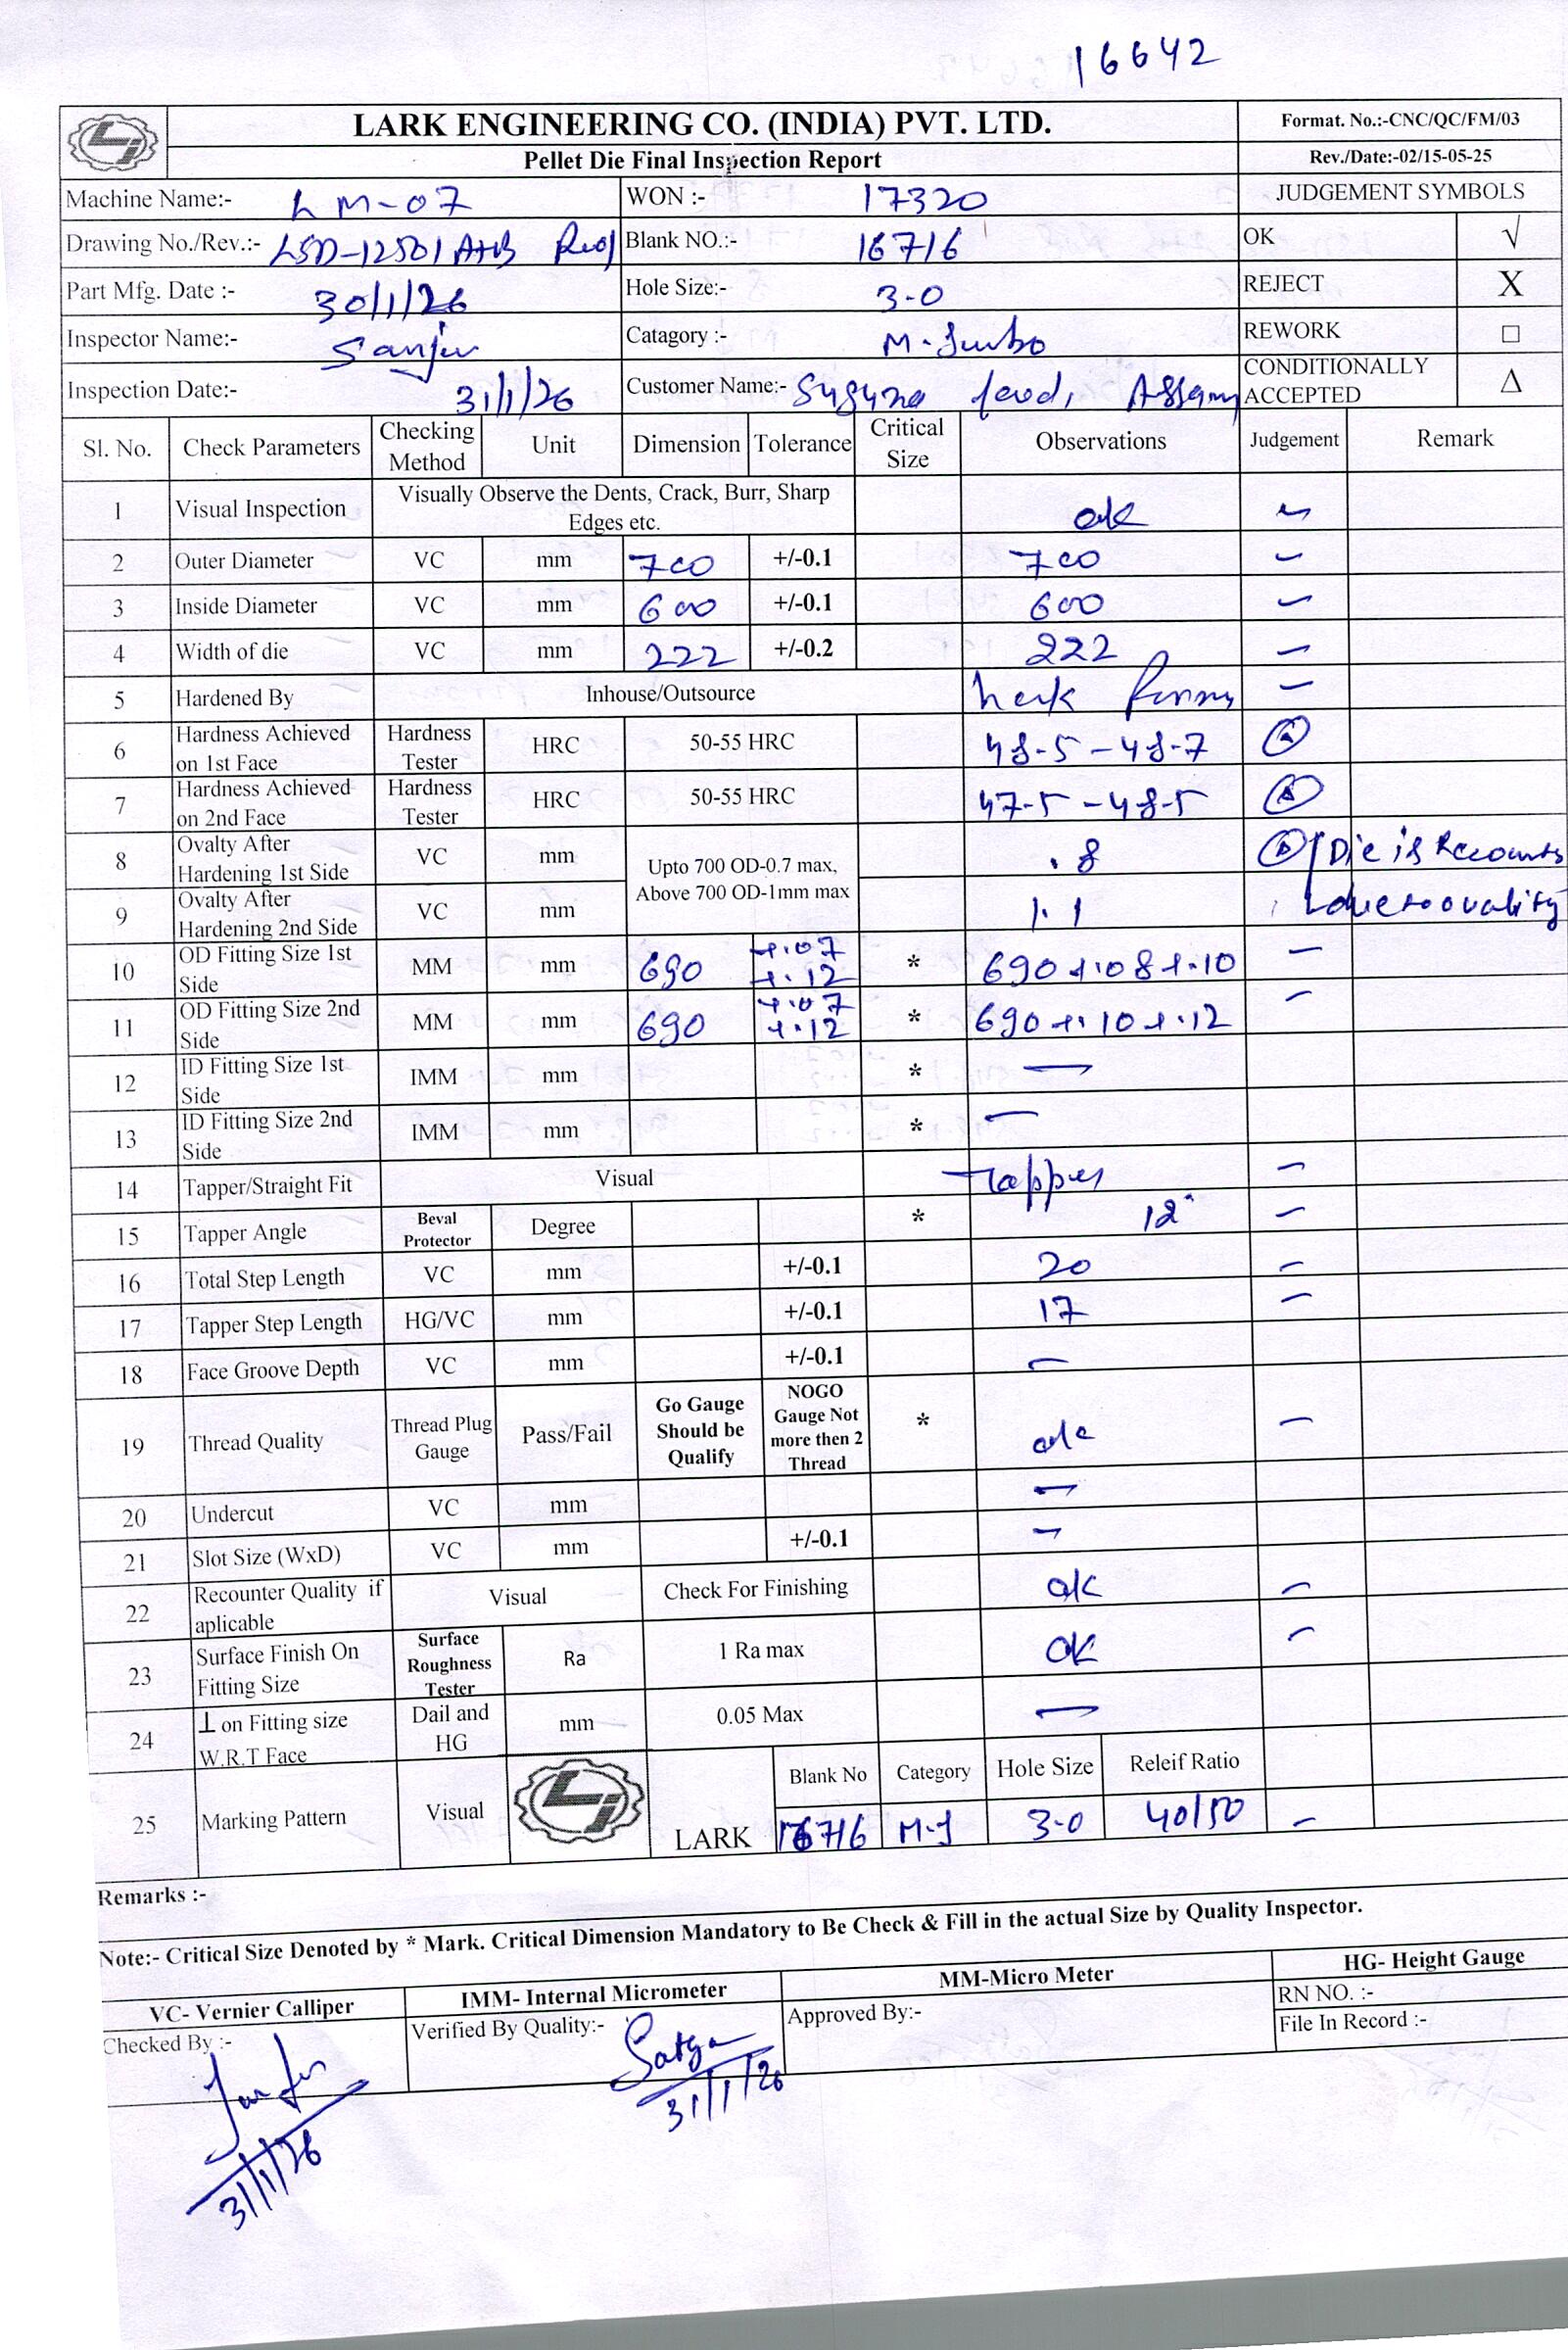 16642
LARK ENGINEERING CO. (INDIA) PVT. LTD.
Format. No.:-CNC/QC/FM/03
Pellet Die Final Inspection Report
Rev./Date:-02/15-05-25
Machine Name:- LM-07 WON :- 17320 JUDGEMENT SYMBOLS
Drawing No./Rev.:- LSD-12501 A+B Blank NO.:- 16716 OK √
Part Mfg. Date :- 30/1/26 Hole Size:- 3.0 REJECT X
Inspector Name:- Sanjiv Catagory :- M-Jumbo REWORK □
Inspection Date:- 31/1/26 Customer Name:- Suguna feed, Assam CONDITIONALLY ACCEPTED Δ
Sl. No. Check Parameters Checking Method Unit Dimension Tolerance Critical Size Observations Judgement Remark
1 Visual Inspection Visually Observe the Dents, Crack, Burr, Sharp Edges etc. ok
2 Outer Diameter VC mm 700 +/-0.1 700 –
3 Inside Diameter VC mm 600 +/-0.1 600 –
4 Width of die VC mm 222 +/-0.2 222 –
5 Hardened By Inhouse/Outsource –
6 Hardness Achieved on 1st Face Hardness Tester HRC 50-55 HRC 48.5 - 48.7
7 Hardness Achieved on 2nd Face Hardness Tester HRC 50-55 HRC 47.5 - 48.5
8 Ovalty After Hardening 1st Side VC mm Upto 700 OD-0.7 max, Above 700 OD-1mm max .8 Die is Recounts
9 Ovalty After Hardening 2nd Side VC mm 1.1 due to ovality
10 OD Fitting Size 1st Side MM mm 690 +.07 +.12 * 690 +.08 +.10 –
11 OD Fitting Size 2nd Side MM mm 690 +.07 +.12 * 690 +.10 +.12 –
12 ID Fitting Size 1st Side IMM mm * —
13 ID Fitting Size 2nd Side IMM mm * —
14 Tapper/Straight Fit Visual Tapper –
15 Tapper Angle Beval Protector Degree * 12° –
16 Total Step Length VC mm +/-0.1 20 –
17 Tapper Step Length HG/VC mm +/-0.1 17 –
18 Face Groove Depth VC mm +/-0.1 —
19 Thread Quality Thread Plug Gauge Pass/Fail Go Gauge Should be Qualify NOGO Gauge Not more then 2 Thread * ok –
20 Undercut VC mm —
21 Slot Size (WxD) VC mm +/-0.1 —
22 Recounter Quality if aplicable Visual Check For Finishing ok –
23 Surface Finish On Fitting Size Surface Roughness Tester Ra 1 Ra max OK –
24 ⊥ on Fitting size W.R.T Face Dail and HG mm 0.05 Max —
25 Marking Pattern Visual LARK Blank No Category Hole Size Releif Ratio
16716 M-J 3.0 40/50 –
Remarks :-
Note:- Critical Size Denoted by * Mark. Critical Dimension Mandatory to Be Check & Fill in the actual Size by Quality Inspector.
VC- Vernier Calliper IMM- Internal Micrometer MM-Micro Meter HG- Height Gauge
Checked By :- Verified By Quality:- Satya Approved By:- RN NO. :-
File In Record :-
31/1/26 31/1/26